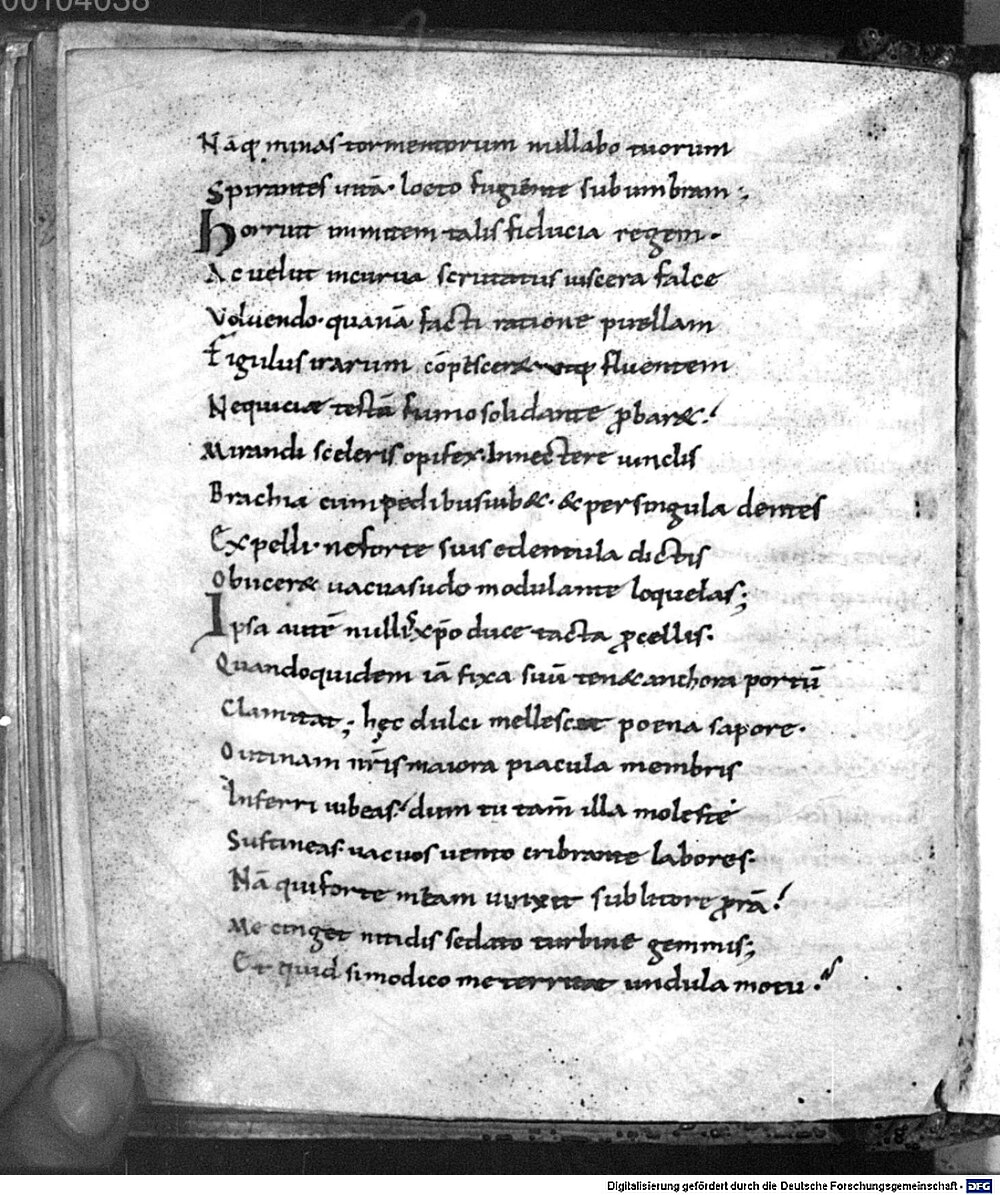 00104038
Nāq; minas tormentorum nullabo tuorum
Spirantes uitā· loeto fugiente sub umbram;
Horruit inmitem talis fiducia regem·
Ac uelut incurua scrutatus uiscera falce
Voluendo· quanā facti ratione puellam
Figulus irarum cōpescer& fluentem
Nequiciæ testā fumo solidante ꝓbar&!
Mirandi sceleris opifex· Innectere uinclis
Brachia cum pedibus iub&· & per singula dentes
Expelli· ne forte suis edentula dictis
Obicer& uacua sudo modulante loquelas;
Ipsa autē nullis xp̄o duce tacta ꝓcellis·
Quandoquidem iā fixa suū ten& anchora portū
Clamitat; hęc dulci mellescat poena sapore·
O utinam nr̄is maiora piacula membris
Inferri iubeas! dum tu tam̄ illa moleste
Sustineas uacuos uento cribrante labores·
Nā qui forte mitam uinxit sub litore ꝓrā!
Me cinget nitidis sedato turbine gemmis;
Et quid si modico me terreat undula motu·
Digitalisierung gefördert durch die Deutsche Forschungsgemeinschaft - DFG